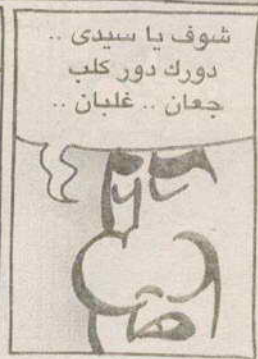 شوف يا سيدى ..
دورك دور كلب
جعان .. غلبان ..